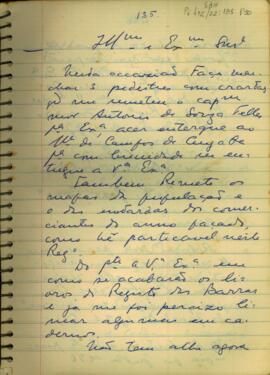 135
SPH
Illmo e Exmo Snr
Nesta occazião Faço mar-
char 3 pedestres com as cartas
q me remeteu o capm
mor Antonio de Souza Telles
pa Exa
de Campos de Cuyabá
pa com brevidade ser en-
tregue a Va Exa
Tambem Remeto os
mapas da população
e das mudanças dos comer-
ciantes do anno passado,
como he praticavel neste
Rego
Da pte a Va Exa em
como se acabarão os li-
vros do Registo das Barras
e ja me foi percizo
algumas em ca-
dernos.
Não tem athe agora